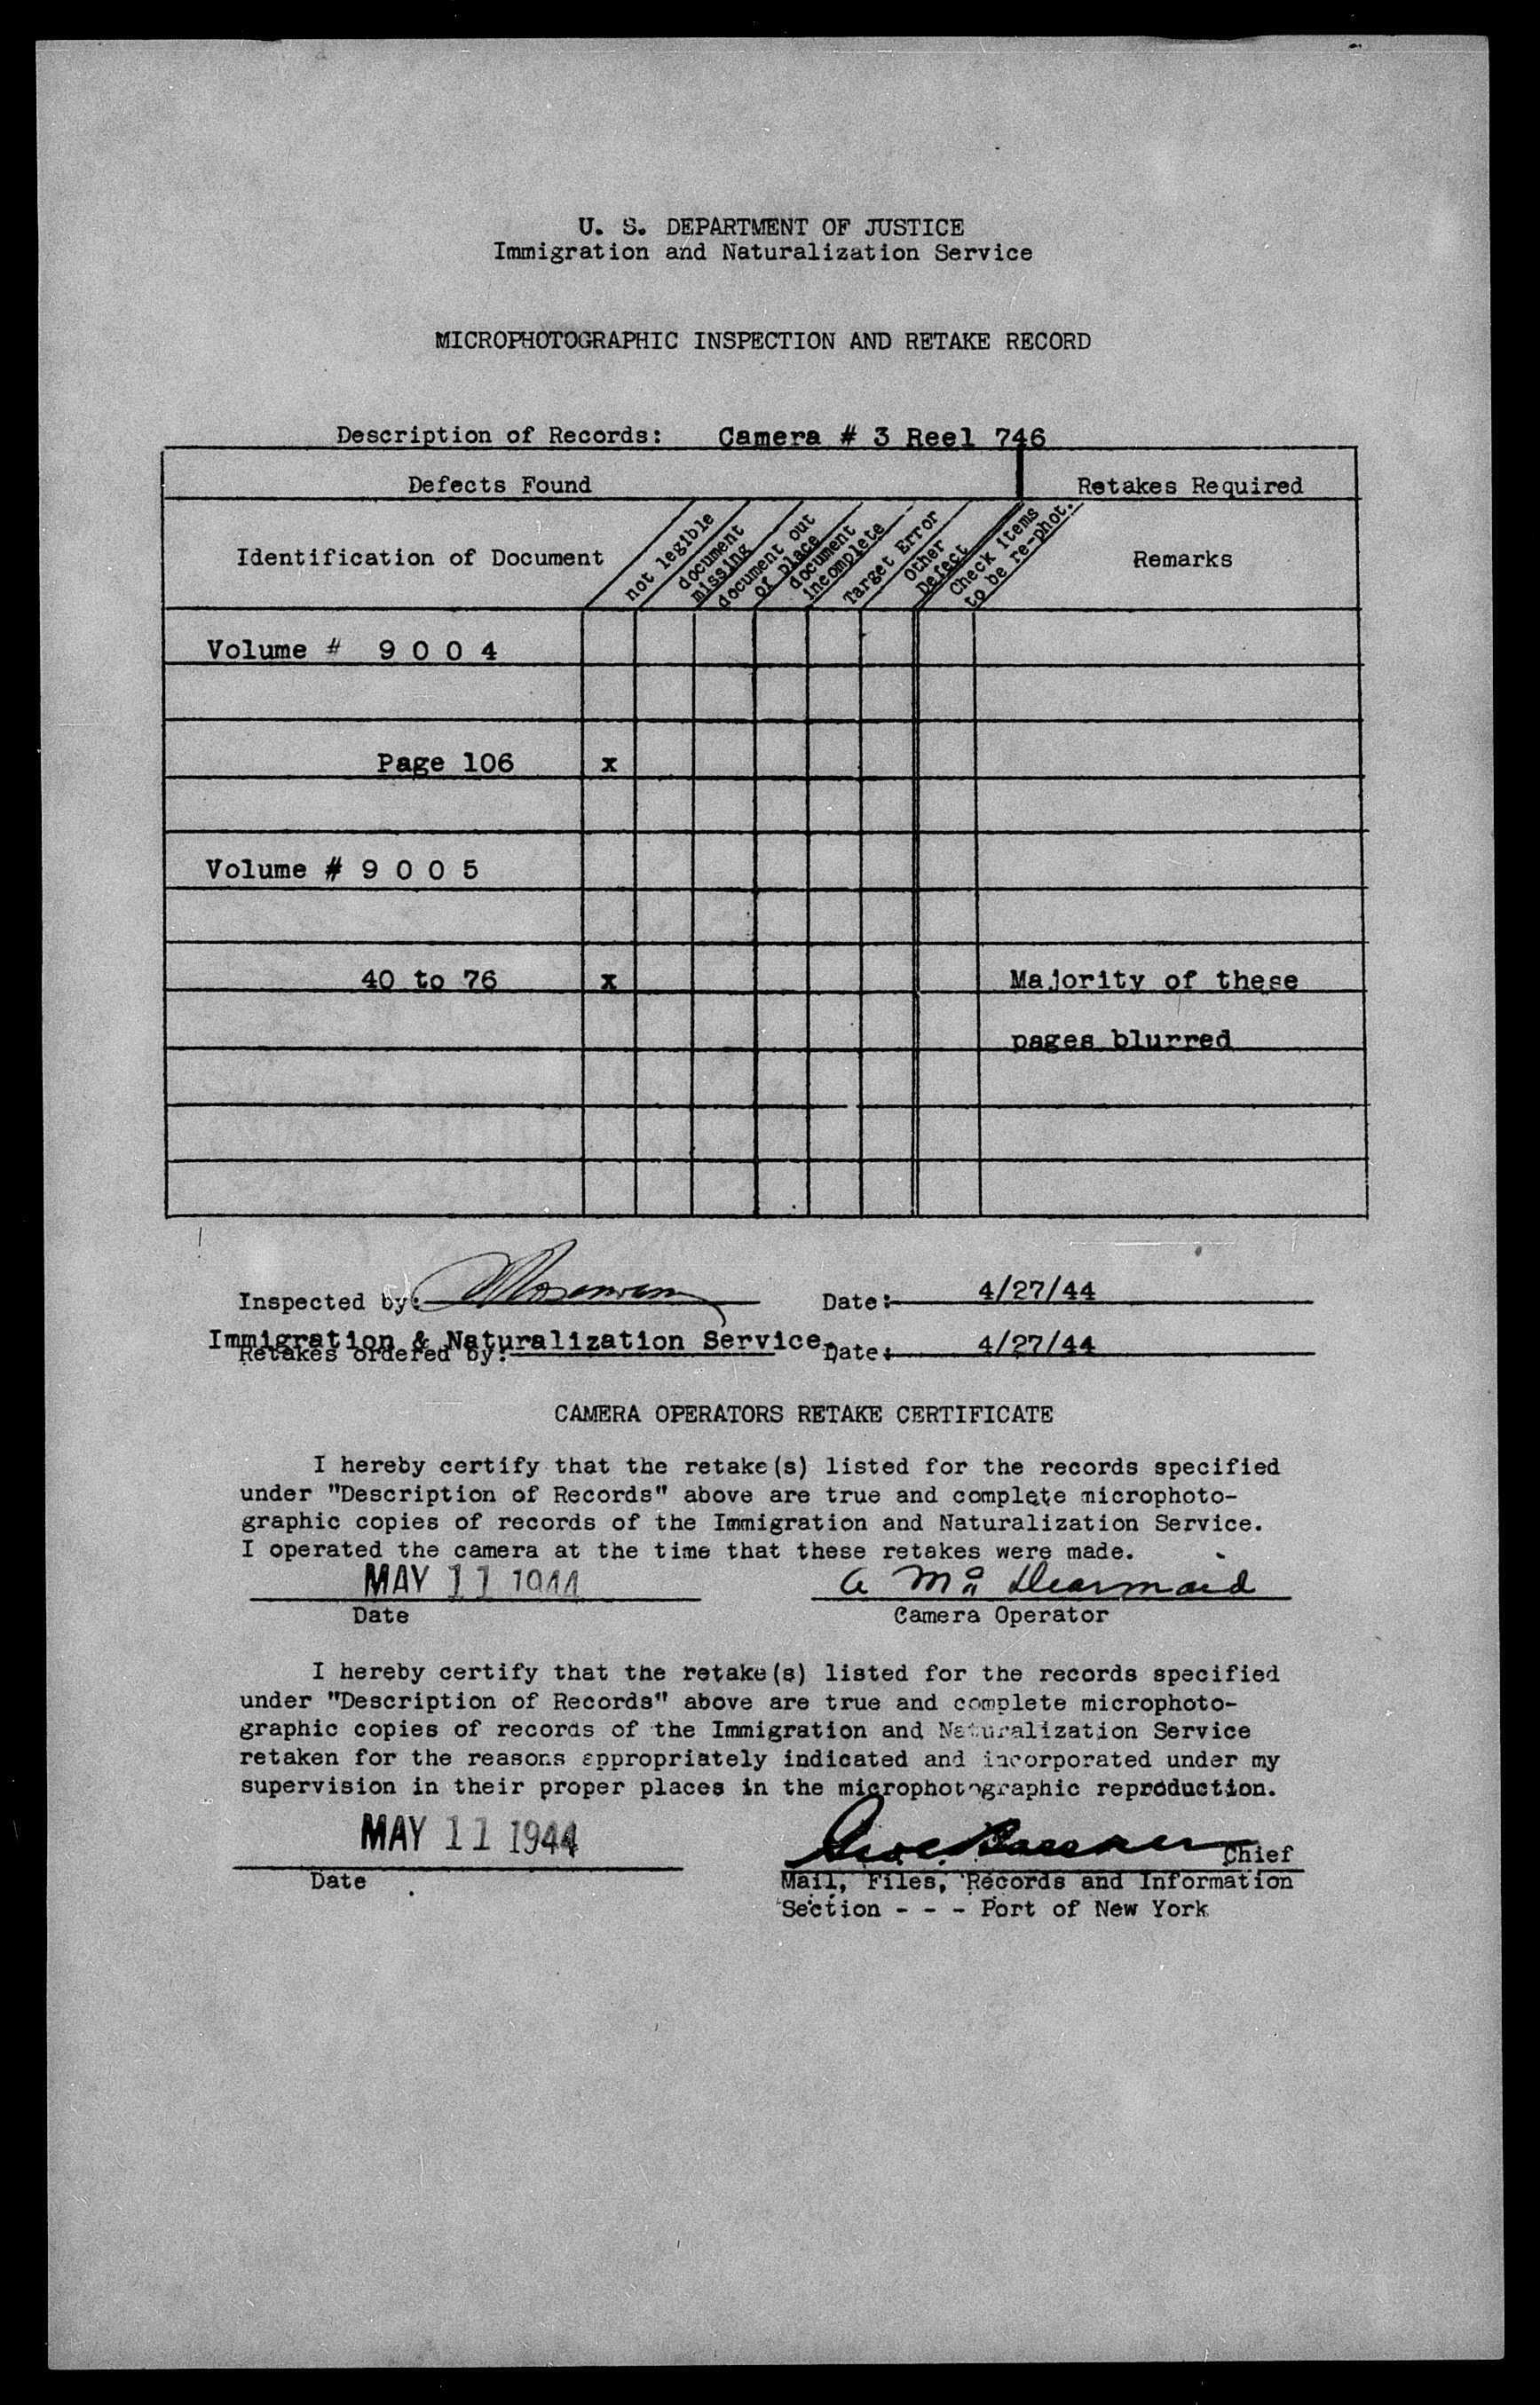 U. S. DEPARTMENT OF JUSTICE
Immigration and Naturalization Service
MICROPHOTOGRAPHIC INSPECTION AND RETAKE RECORD
Description of Records: Camera # 3 Reel 746
Defects Found
Retakes Required
Identification of Document
not legible
document missing
document out of place
document incomplete
Target Error
Other Defect
Check items to be re-phot.
Remarks
Volume # 9 0 0 4
Page 106 x
Volume # 9 0 0 5
40 to 76 x Majority of these
pages blurred
Inspected by: Date: 4/27/44
Immigration & Naturalization Service.
Retakes ordered by: Date: 4/27/44
CAMERA OPERATORS RETAKE CERTIFICATE
I hereby certify that the retake(s) listed for the records specified
under "Description of Records" above are true and complete microphoto-
graphic copies of records of the Immigration and Naturalization Service.
I operated the camera at the time that these retakes were made.
MAY 11 1944
Date Camera Operator
I hereby certify that the retake(s) listed for the records specified
under "Description of Records" above are true and complete microphoto-
graphic copies of records of the Immigration and Naturalization Service
retaken for the reasons appropriately indicated and incorporated under my
supervision in their proper places in the microphotographic reproduction.
MAY 11 1944 Chief
Date Mail, Files, Records and Information
Section - - - Port of New York